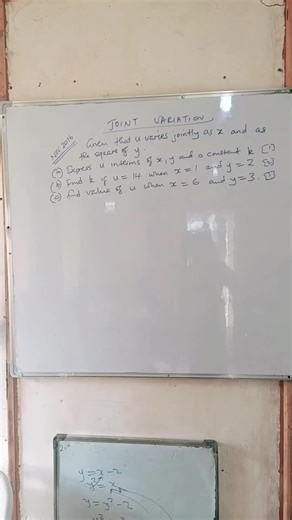 JOINT VARIATION
Nov 2016
Given that u varies jointly as x and as
the square of y.
(a) Express u interms of x, y and a constant k [1]
(b) Find k if u = 14 when x = 1 and y = 2 [2]
(c) find value of u when x = 6 and y = 3. [1]
y = x - 2
y = y³ - 2